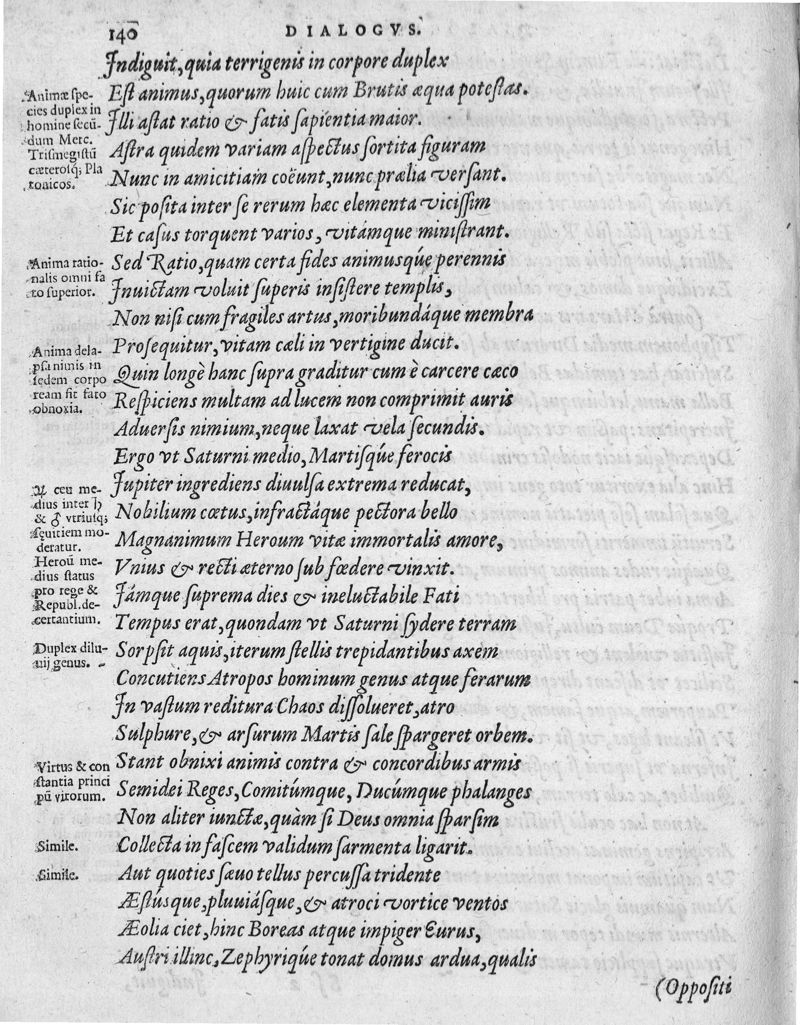 140
DIALOGVS.
Indiguit, quia terrigenis in corpore duplex
Est animus, quorum huic cum Brutis æqua potestas.
Illi astat ratio & fatis sapientia maior.
Astra quidem variam aspectus sortita figuram
Nunc in amicitiam coëunt, nunc prælia versant.
Sic posita inter se rerum hæc elementa vicissim
Et casus torquent varios, vitámque ministrant.
Sed Ratio, quam certa fides animusq́ue perennis
Inuictam voluit superis insistere templis,
Non nisi cum fragiles artus, moribundáque membra
Prosequitur, vitam cæli in vertigine ducit.
Quin longè hanc supra graditur cum è carcere cæco
Respiciens multam ad lucem non comprimit auris
Aduersis nimium, neque laxat vela secundis.
Ergo vt Saturni medio, Martisq́ue ferocis
Iupiter ingrediens diuulsa extrema reducat,
Nobilium cœtus, infractáque pectora bello
Magnanimum Heroum vitæ immortalis amore,
Vnius & recti æterno sub fœdere vinxit.
Iámque suprema dies & ineluctabile Fati
Tempus erat, quondam vt Saturni sydere terram
Sorpsit aquis, iterum stellis trepidantibus axem
Concutiens Atropos hominum genus atque ferarum
In vastum reditura Chaos dissolueret, atro
Sulphure, & arsurum Martis sale spargeret orbem.
Stant obnixi animis contra & concordibus armis
Semidei Reges, Comitúmque, Ducúmque phalanges
Non aliter iunctæ, quàm si Deus omnia sparsim
Collecta in fascem validum sarmenta ligarit.
Aut quoties sæuo tellus percussa tridente
Æstúsque, pluuiásque, & atroci vortice ventos
Æolia ciet, hinc Boreas atque impiger Eurus,
Austri illinc, Zephyriq́ue tonat domus ardua, qualis
(Oppositi
Animæ spe-
cies duplex in
homine secũ-
dum Merc.
Trismegistũ
cæterosq; Pla
tonicos.
Anima ratio-
nalis omni fa
to superior.
Anima dela-
psa nimis in
sedem corpo
ream fit fato
obnoxia.
♃ ceu me-
dius inter ♄
& ♂ vtriusq;
sæuitiem mo-
deratur.
Heroũ me-
dius status
pro rege &
Republ. de-
certantium.
Duplex dilu-
uij genus.
Virtus & con
stantia princi
pũ virorum.
Simile.
Simile.